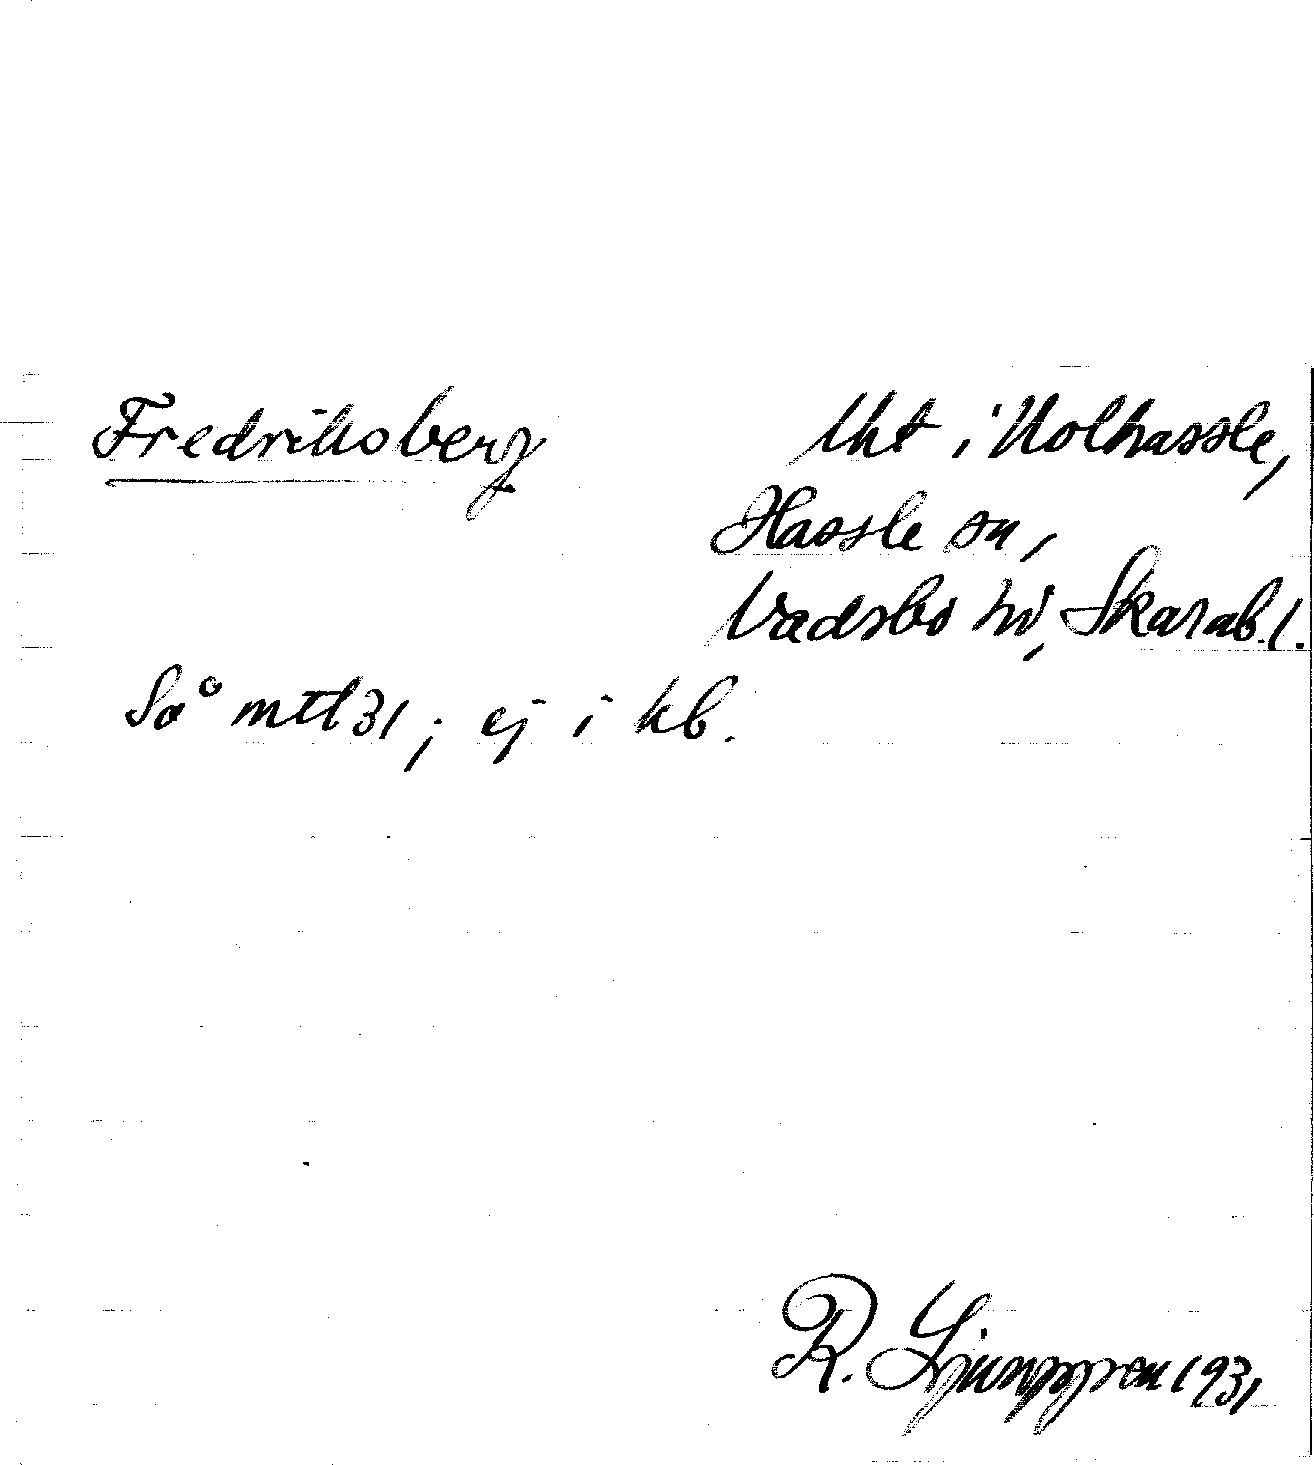 Fredriksberg
lht i Nolhassle,
Hassle sn,
Vadsbo hd, Skarab. l.
Så mtl 31; ej i kb.
R. Ljunggren 1931